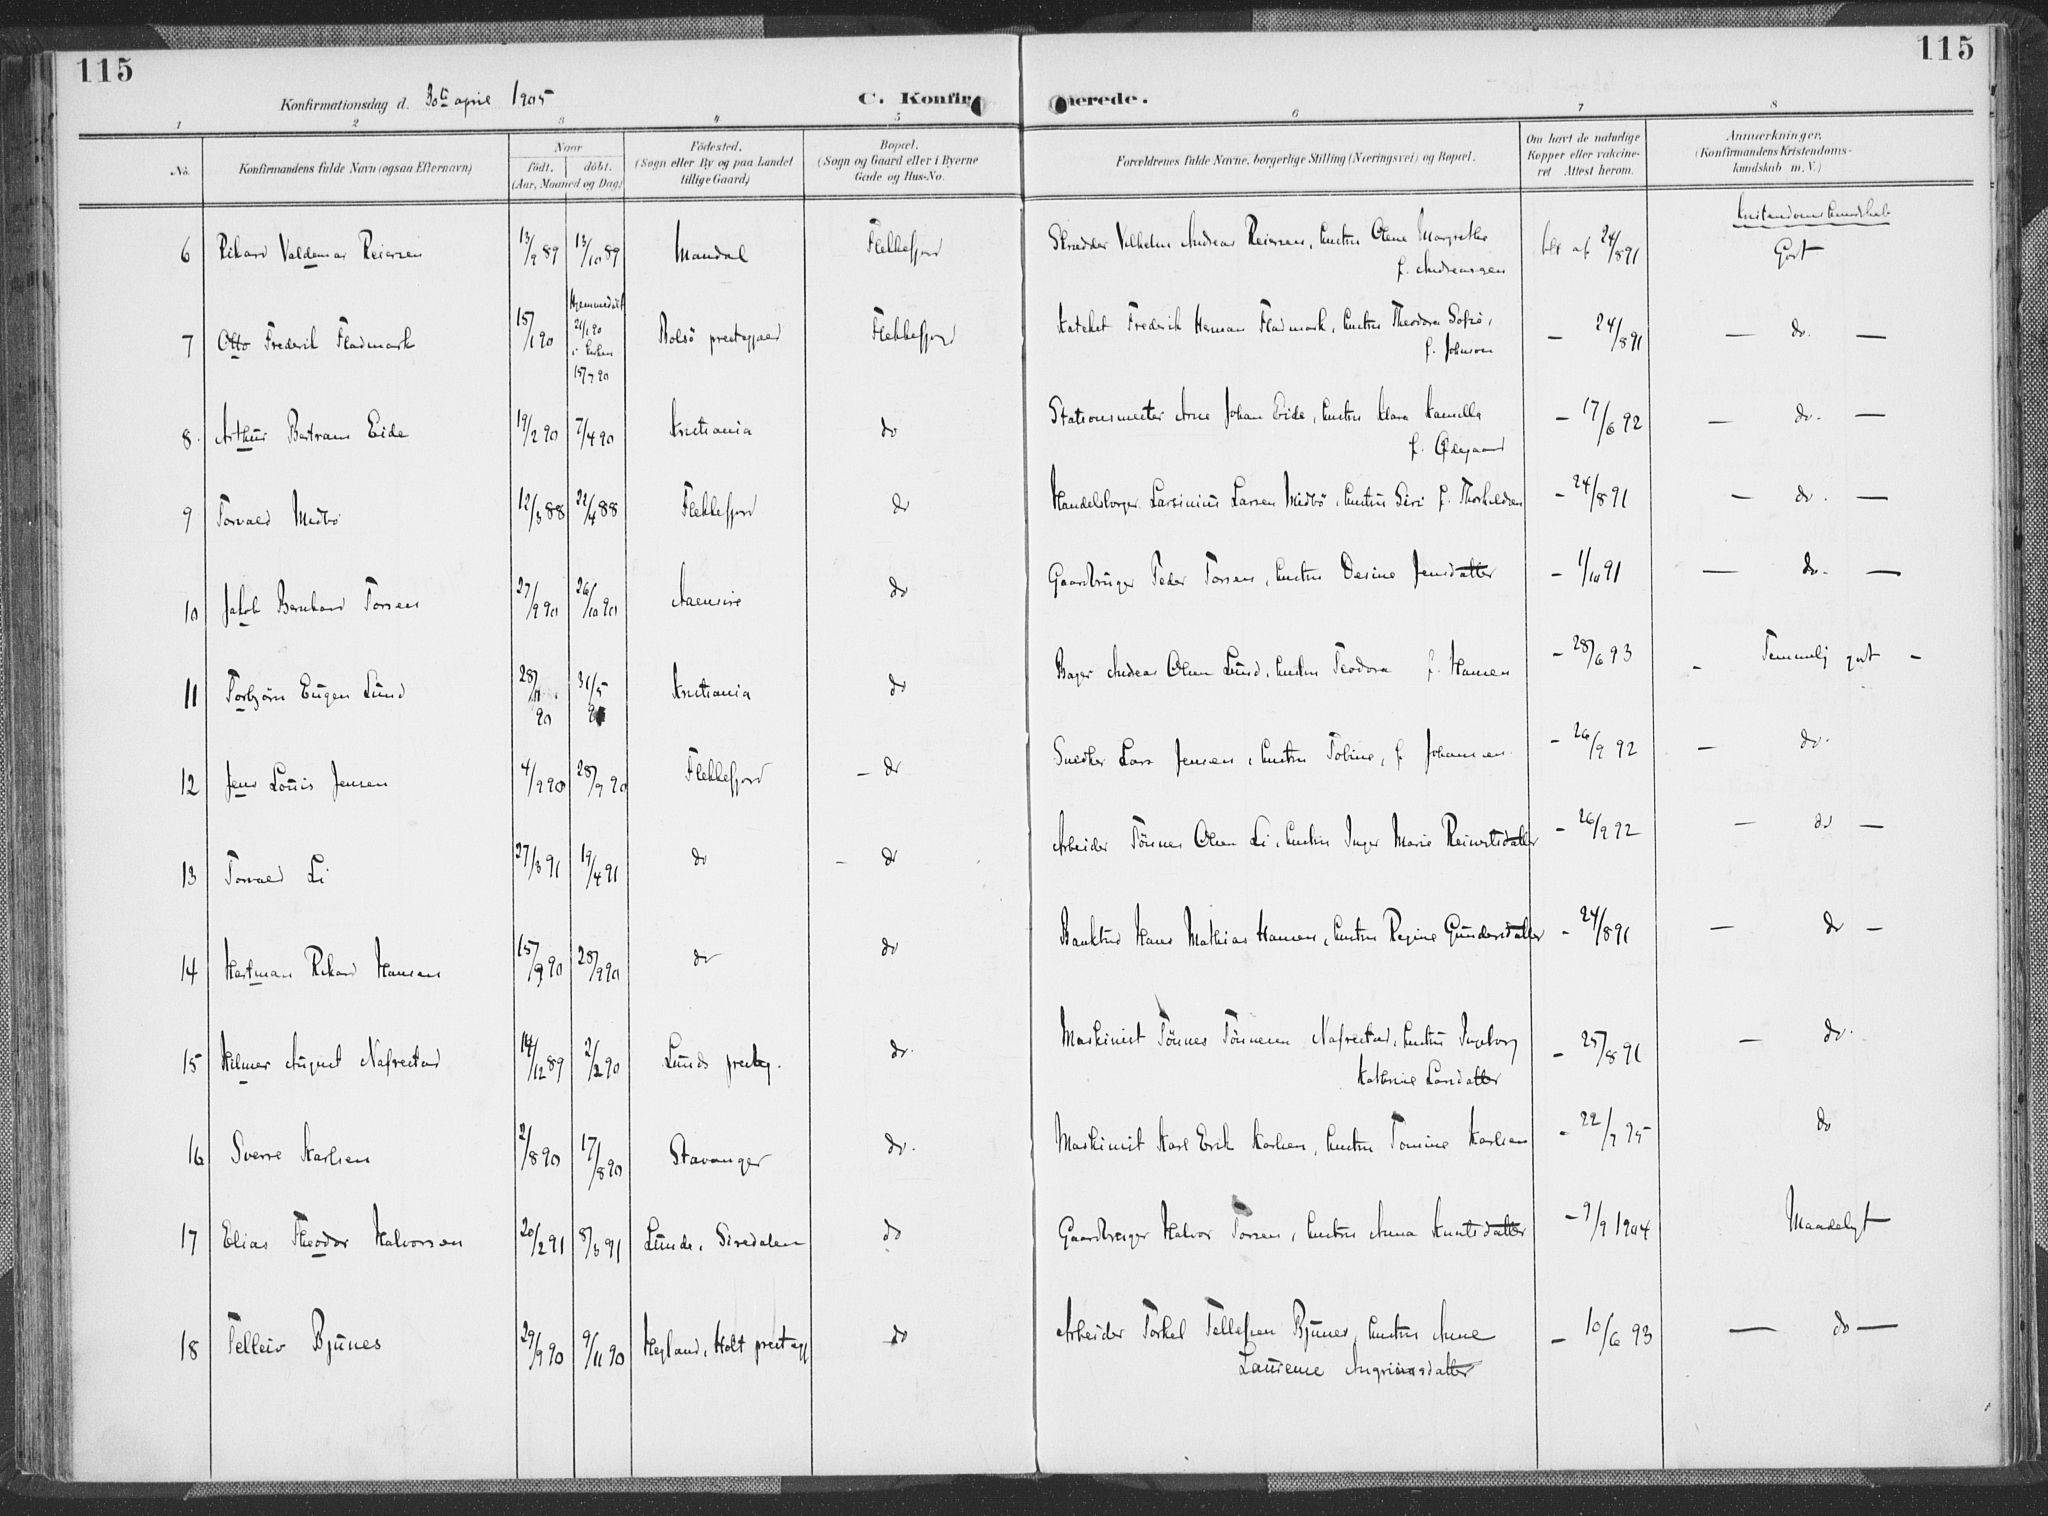 115
115
Konfirmationsdag d. 30te april 1905
C. Konfir
merede.
1 2 3 4 5 6 7 8
No. Konfirmandens fulde Navn (ogsaa Efternavn)
Naar
født. døbt.
(Aar, Maaned og Dag)
Fødested.
(Sogn eller By og paa Landet
tillige Gaard)
Bopæl.
(Sogn og Gaard eller i Byerne
Gade og Hus-No.
Forældrenes fulde Navne, borgerlige Stilling (Næringsvei) og Bopæl.
Om havt de naturlige
Kopper eller vakcine-
ret Attest herom.
Anmærkninger.
(Konfirmandens Kristendoms-
kundskab m. V.)
Kristendomskundskab
6 Rikard Valdemar Reiersen 13/9 89 13/10 89 Mandal Flekkefjord Skrædder Vilhelm Andreas Reiersen, hustru Olene Margrethe
f. Andreassen
24/8 91 Godt
7 Otto Frederik Fladmark 15/1 90 Hjemmedøbt
21/1 90
i kirken
15/7 90
Bolsø prestegjæld Flekkefjord Kateket Frederik Herman Fladmark, hustru Theodora Sofie,
f. Johnson
— 24/8 91 — do. —
8. Arthur Bertram Eide 19/2 90 7/4 90 Kristiania do Stationsmester Arne Johan Eide, hustru Klara Kamilla
f. Ødegaard
— 17/6 92 — do. —
9 Torvald Midbø 12/3 88 22/4 88 Flekkefjord do Handelsborger Larsinius Larsen Midbø, hustru Siri f. Thorkildsen — 24/8 91 — do. —
10 Jakob Bernhard Torsen 27/9 90 26/10 90 Aaensire do Gaardbruger Peder Torsen, hustru Desine Jensdatter — 1/10 91 — do. —
11 Torbjørn Eugen Lund 28/11 90 31/5 Kristiania do Bager Andreas Olsen Lund, hustru Teodora f. Hansen — 28/6 93 — Temmelig godt —
12 Jens Louis Jensen 4/9 90 28/9 90 Flekkefjord — do Snedker Lars Jensen, hustru Tobine, f. Johannesen — 26/9 92 — do.
13 Torvald Li 27/3 91 19/4 91 do — do Arbeider Tønnes Olsen Li, hustru Inger Marie Reinertsdatter — 26/9 92 — do —
14 Hartman Rikard Hansen 15/9 90 28/9 90 do do Bankbud Hans Mathias Hansen, hustru Regine Gundersdatter — 24/8 91 — do —
15 Hilmer August Nafrestad 14/12 89 2/2 90 Lunds presteg. do. Maskinist Tønnes Tønnesen Nafrestad, hustru Ingeborg
Kathrine Larsdatter
— 25/8 91 — do.
16 Sverre Karlsen 2/8 90 17/8 90 Stavanger do. Maskinist Karl Erik Karlsen, hustru Tomine Karlsen — 22/7 95 do
17 Elias Theodor Halvorsen 20/2 91 8/3 91 Lunde, Siredalen do Gaardbruger Halvor Torsen, hustru Anna Knutsdatter — 9/9 1904 Maadelegt
18 Telleiv Bjunes 29/9 90 9/11 90 Hegland, Holt presteg do Arbeider Torkel Tellefsen Bjunes, hustru Anne
Laurense Angrimsdatter
— 10/6 93 — do —